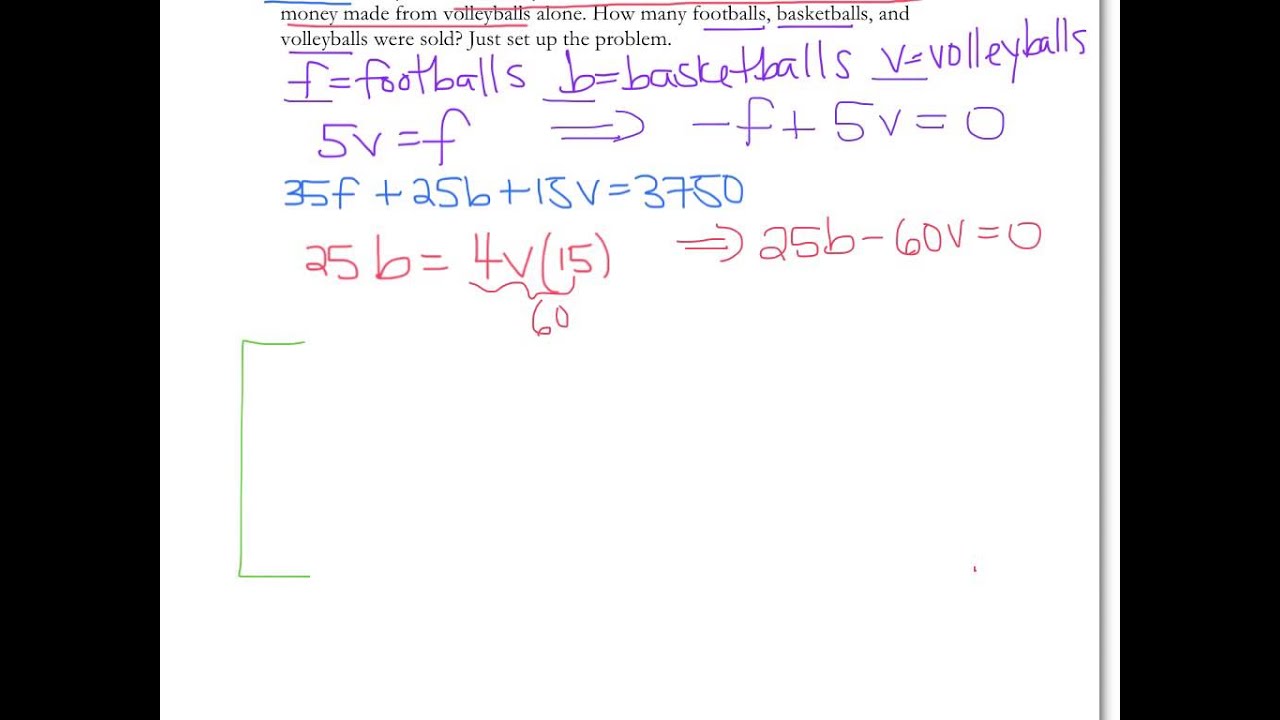 money made from volleyballs alone. How many footballs, basketballs, and
volleyballs were sold? Just set up the problem.
f=footballs b=basketballs v=volleyballs
5v=f ⇒ -f+5v=0
35f+25b+15v=3750
25b=4v(15) ⇒ 25b-60v=0
60